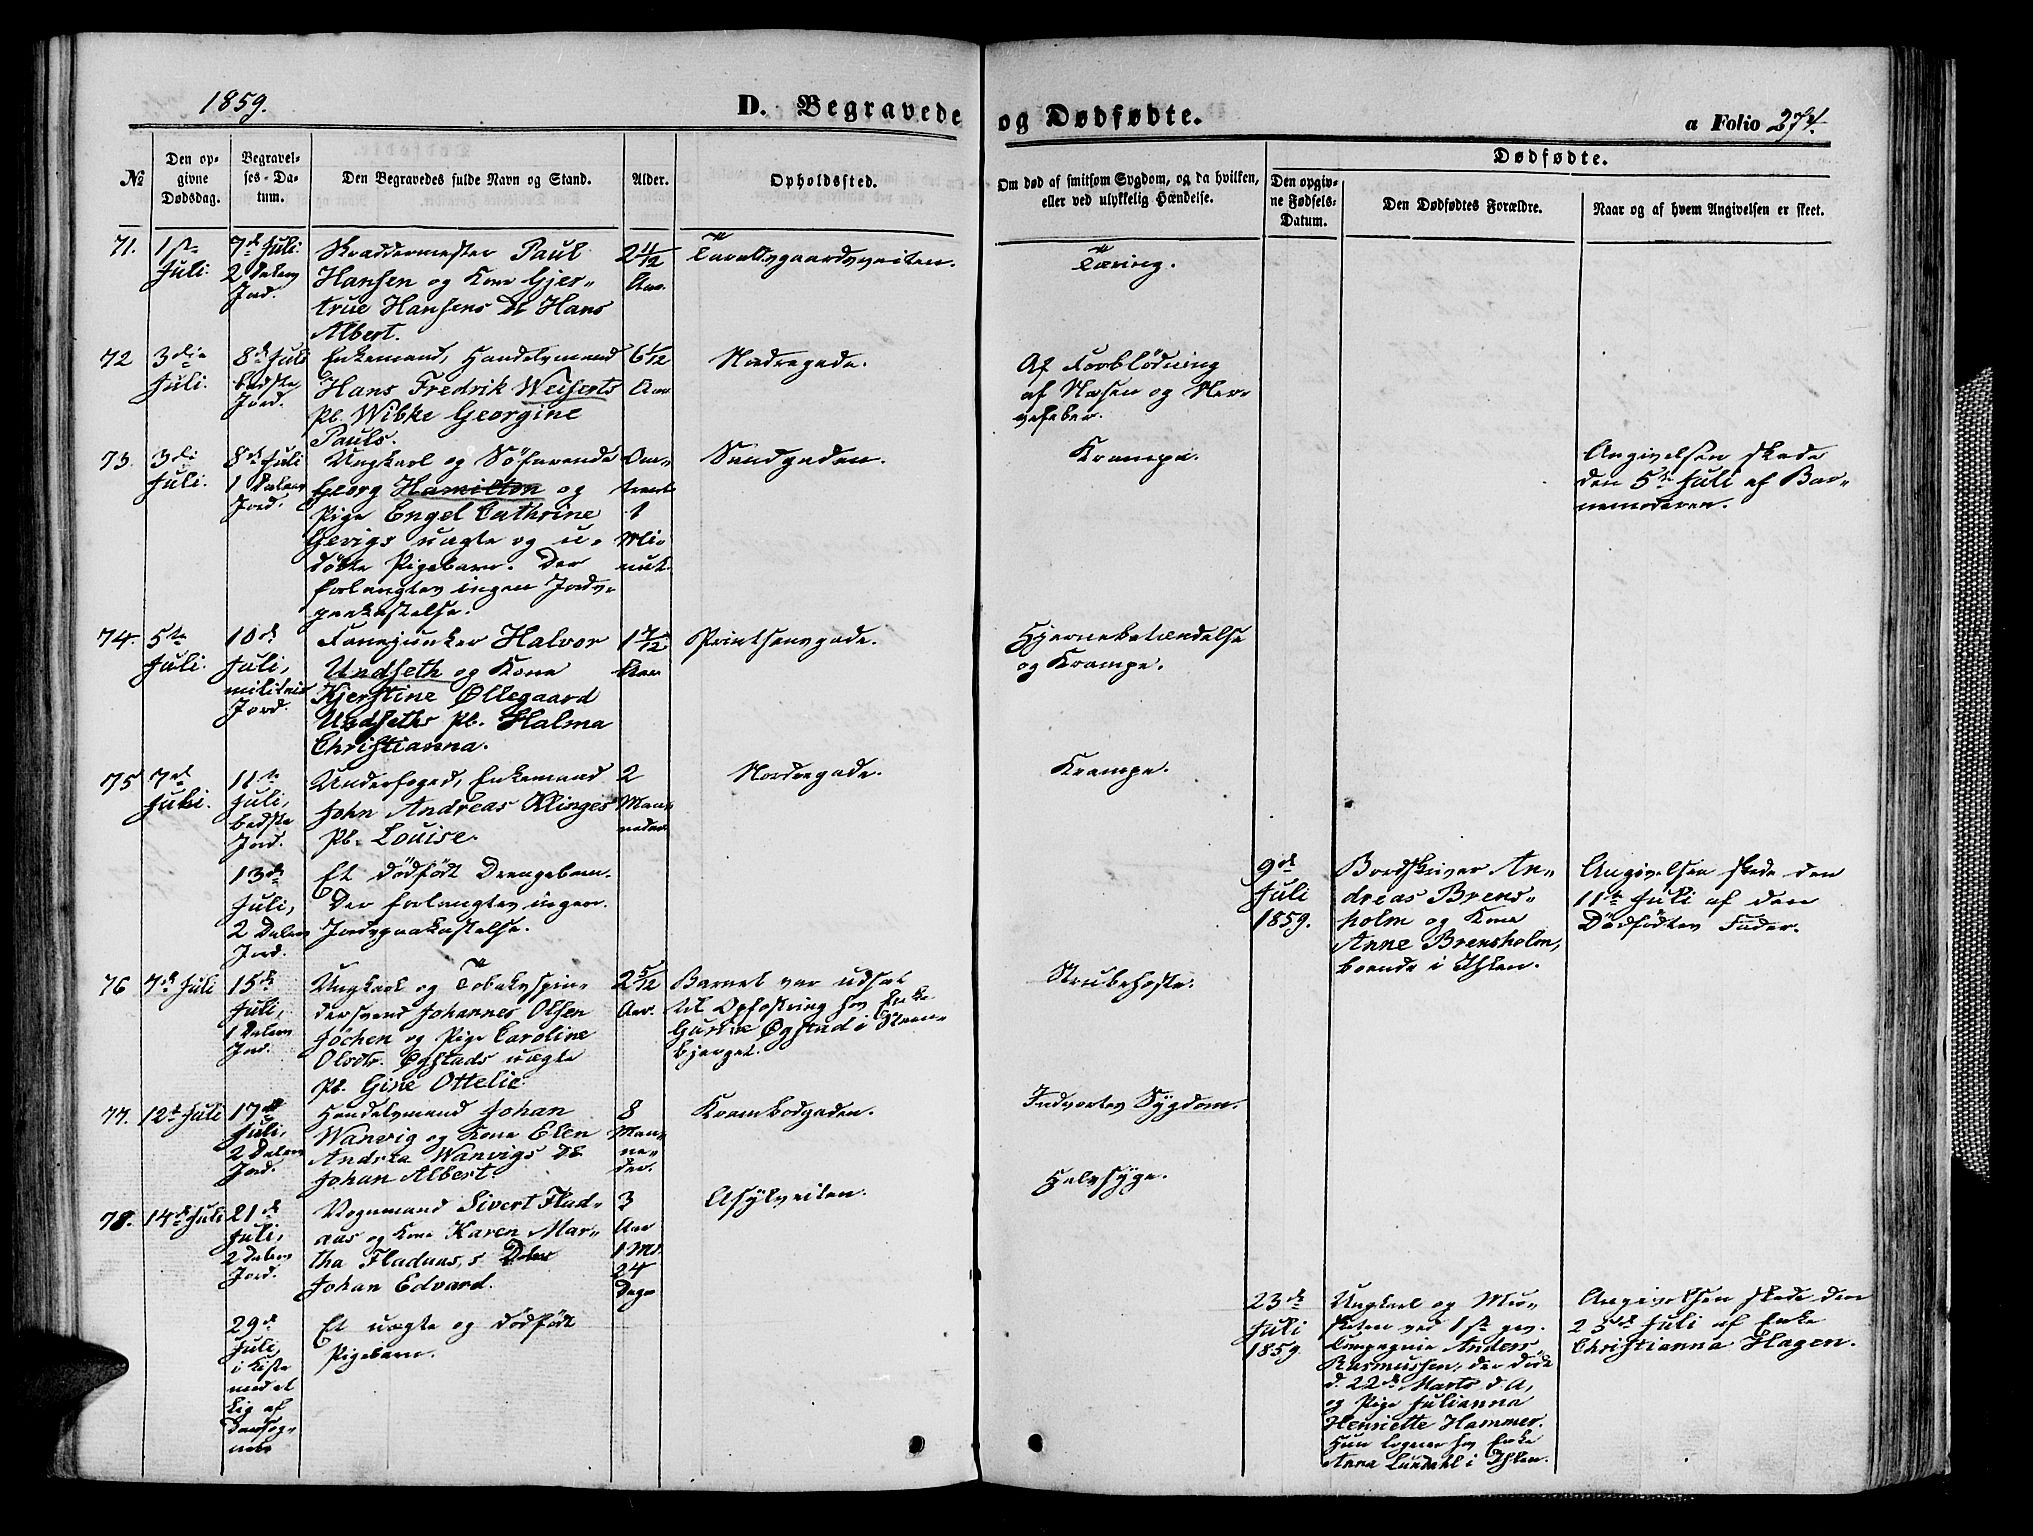 1859.
D. Begravede og Dødfødte.
a Folio 274.
№
Den opgivne Dødsdag.
Begravelses-Datum.
Den Begravedes fulde Navn og Stand.
Alder.
Opholdssted.
Om død af smitsom Sygdom, og da hvilken, eller ved ulykkelig Hændelse.
Dødfødte.
Den opgivne Fødsels-Datum.
Den Dødfødtes Forældre.
Naar og af hvem Angivelsen er skeet.
71.
1ste
Juli.
7de Juli.
2 Dalers
Jord.
Skræddermester Paul
Hansen og Kone Gjer-
true Hansens Db Hans
Albert.
2 11/12
Aar.
Taraldsgaardsveiten.
Tæring.
72
3die
Juli.
8de Juli
bedste
Jord.
Enkemand, Handelsmand
Hans Fredrik Weiserts
Pb. Wibke Georgine
Pauls.
Aar
Nordregade.
Af Forblödning
af Næsen og Ner-
vefeber.
73.
3die
Juli.
8de Juli
1 Dalers
Jord.
Ungkarl og Söfarende
Georg Hamilton og
Pige Engel Cathrine
Gevigs uægte og u-
döbte Pigebarn. Der
forlangtes ingen Jords-
paakastelse.
Om-
trent
1
Mi-
nut.
Sandgaden.
Krampe.
Angivelsen skede
den 5te Juli af Bar-
nemoderen.
74.
5te
Juli.
10de
Juli,
militair
Jord.
Fanejunker Halvor
Undseth og Kone
Kjerstine Øllegaard
Undseths Pb. Halma
Christianna.
1 7/12
Aar
Printsensgade.
Hjernebetændelse
og Krampe.
75
7de
Juli.
11te
Juli,
bedste
Jord.
Underfoged, Enkemand
John Andreas Klinges
Pb. Louise.
2
Maa-
neder
Nordregade.
Krampe.
13de
Juli,
2 Dalers
Jord.
Et dödfödt Drengebarn.
Der forlangtes ingen
Jordspaakastelse.
9de
Juli
1859.
Bordskriver An-
dreas Brens-
holm og Kone
Anne Brensholm,
boende i Ihlen.
Angivelsen skede den
11te Juli af den
Dödfödtes Fader.
76
7de Juli
15de
Juli,
1 Dalers
Jord.
Ungkarl og Tobakspin-
dersvend Johannes Olsen
Jochen og Pige Caroline
Olsdtr. Øgstads uægte
Pb. Gine Ottelie.
2 5/12
Aar.
Barnet var udsat
til Opfostring hos Enke
Øgstad i Steen-
bjerget.
Strubehoste.
77.
12te Juli
17de
Juli,
2 Dalers
Jord.
Handelsmand Johan
Wanvig og Kone Elen
Andrea Wanvigs Db
Johan Albert.
8
Maa-
ne-
der.
Krambodgaden.
Indvortes Sygdom.
78.
14de Juli
21de
Juli,
2 Dalers
Jord.
Vognmand Sivert Flad-
aas og Kone Karen Mar-
tha Fladaas,s
Johan Edvard.
3
Aar
1 Md.
24
Dage
Asylveiten.
Halssyge.
29de
Juli,
i Kiste
med et
Lig af
Et uægte og dödfödt
Pigebarn.
23de
Juli
1859.
Ungkarl og Mu-
sketer ved 1ste gev.
Compagnie Anders
Rasmussen, der döde
d. 22de Marts d. A,
og Pige Julianna
Henriette Hammer.
Hun logerer hos Enke
Anna Lündahl i Ihlen.
Angivelsen skede den
25de Juli af Enke
Christianna Hagen.